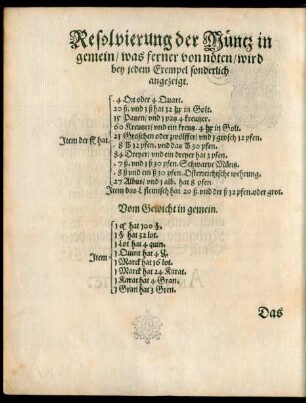 Resolvierung der Müntz in
gemein/ was ferner von nöten/ wird
bey jedem Exempel sonderlich
angezeigt.
4 Ort oder 4 Quart.
20 ß. und 1 ß hat 12 hr in Golt.
15 Patzen/ und 1 patz 4 kreutzer.
60 Kreutzer/ und ein kreutz. 4 hr in Golt.
21 Groschen oder zwölffer/ und 1 grosch 12 pfen.
Item der fl. hat
8 ß 12 pfen. und das ß 30 pfen.
84 Dreyer/ und ein dreyer hat 3 pfen.
7 ß. und 1 ß 30 pfen. Schwartze Müntz.
8 ß und ein ß 30 pfen. Osterreichische wehrung.
27 Albus/ und 1 alb. hat 8 pfen.
Item das ℔ flemisch hat 20 ß. und der ß 12 pfen. oder grot.
Vom Gewicht in gemein.
1 hat 100
1 hat 32 lot.
1 Lot hat 4 quin.
Item
1 Quent hat 4
1 Marck hat 16 lot.
1 Marck hat 24 Karat.
1 Karat hat 4 Gran.
1 Gran hat 3 Gren.
Das